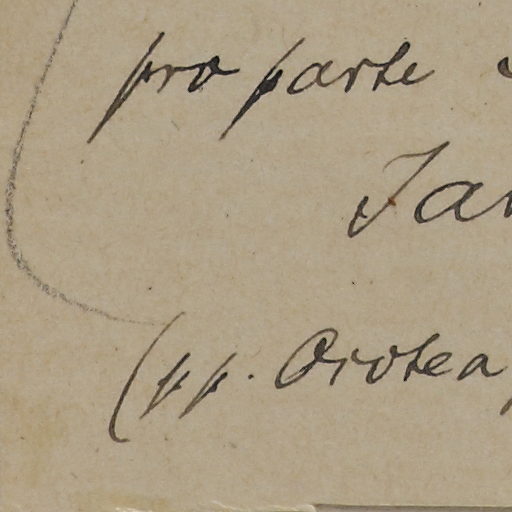 pro parte
Jan
(pp. Orotea